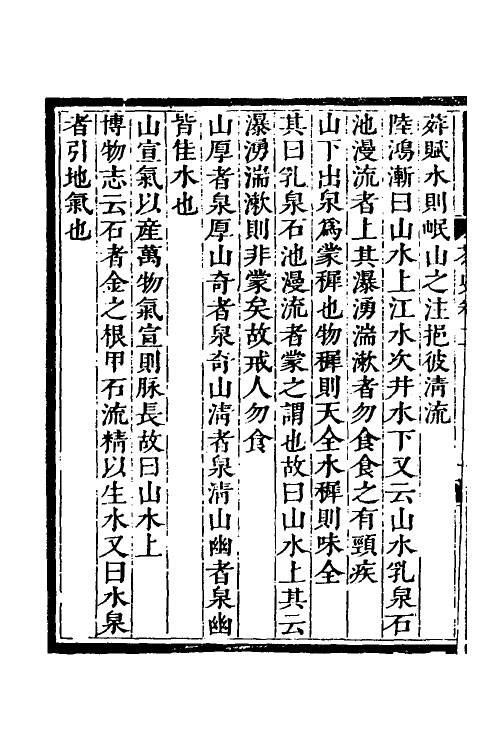 荈賦水則岷山之注挹彼淸流
陸鴻漸曰山水上江水次井水下又云山水乳泉石
池漫流者上其瀑湧湍漱者勿食食之有頸疾
山下出泉爲蒙穉也物穉則天全水穉則味全
其曰乳泉石池漫流者蒙之謂也故曰山水上其云
瀑湧湍漱則非蒙矣故戒人勿食
山厚者泉厚山奇者泉奇山淸者泉淸山幽者泉幽
皆佳水也
山宣氣以産萬物氣宣則脉長故曰山水上
博物志云石者金之根甲石流精以生水又曰水泉
者引地氣也